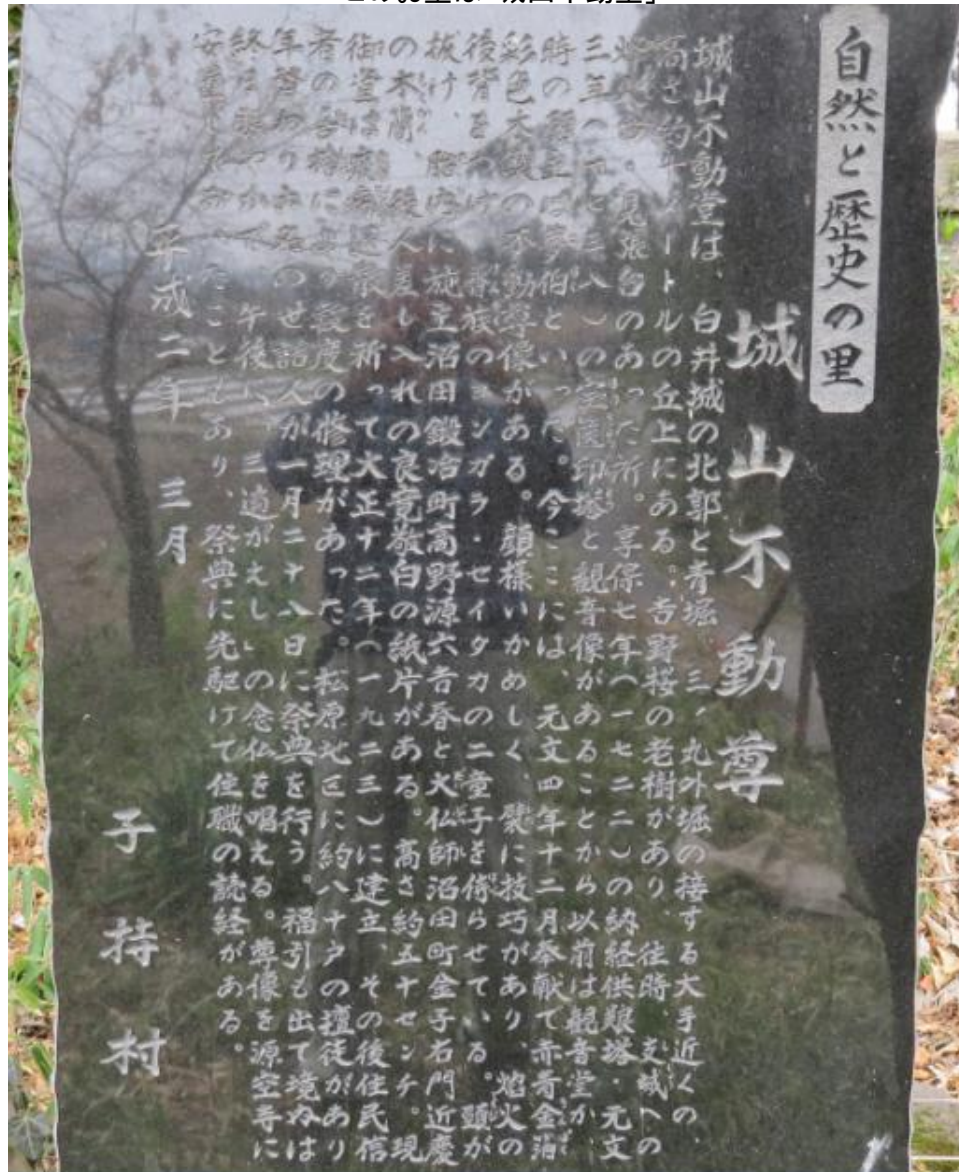 自然と歴史の里
城山不動尊
城山不動堂は、白井城の北郭と青堀、三ノ丸外堀の接する大手近くの、
高さ約十メートルの丘上にある。吉野桜の老樹があり、往時、支城への
見張台のあった所。享保七年(一七二二)の納経供養塔・元文
三年(一七三八)の宝篋印塔と観音像があることから以前は観音堂か、
時の領主は夢伯といった。今ここには、元文四年十二月奉献で赤青金消
彩色大破の不動尊像がある。顔様いかめしく、襞に技巧があり、焰火の
後背をつけ、眷族のコンガラ・セイタカの二童子を侍らせている。頭が
抜け、胎内に施主沼田鍛冶町高野源六吉春と大仏師沼田町金子右門近慶
の木簡、後人差し入れの良竟敬白の紙片がある。高さ約五十センチ。現
御堂は疫病退散を祈って大正十二年(一九二三)に建立、その後住民信
者の奇特により数度の修理があった。松原地区に約八十戸の壇徒があり
年番わり六名のせ話人が一月二十八日に祭典を行う。福引も出て境内は
終日賑やかで、午後に、「三遍がえし」の念仏を唱える。尊像を源空寺に
安置したこともあり、祭典に先駆けて住職の読経がある。
平成二年 三月
子持村